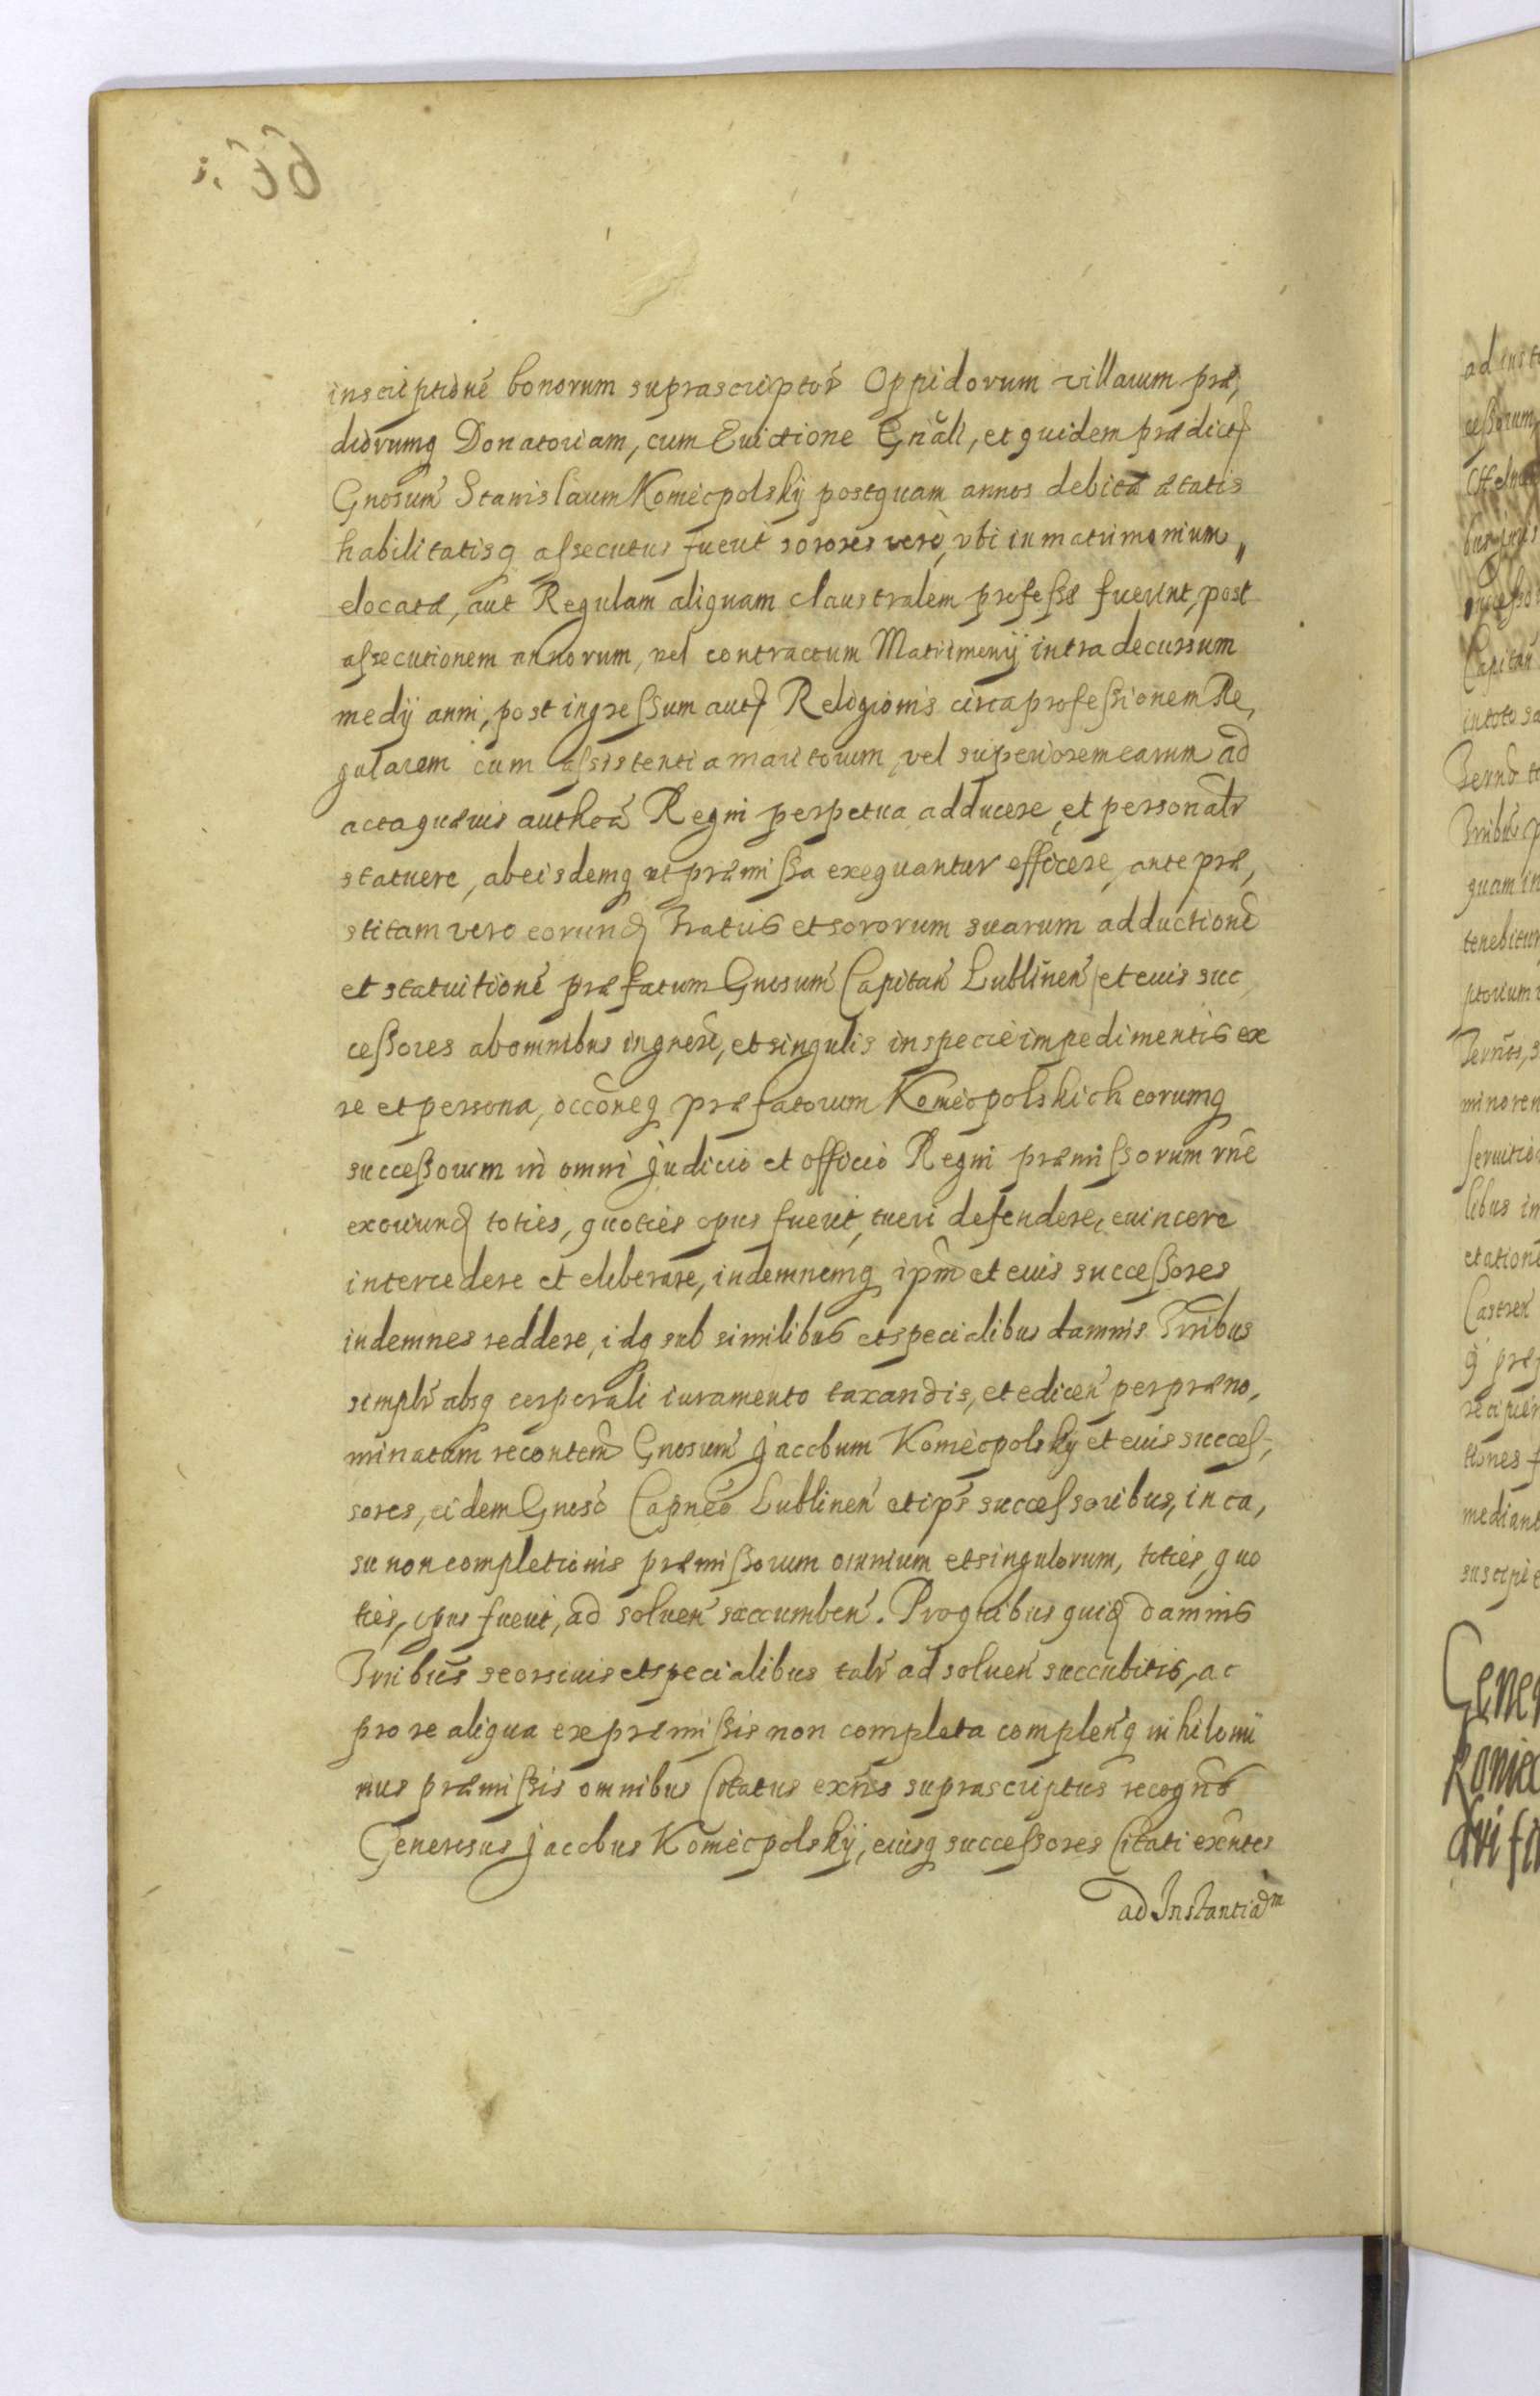 inscriptionē bonorum suprascriptoř Oppidorum villarum præ,
diorumq Donatoriam, cum Euictione Gnāli, et quidem prædict
Gnosum Stanislaum Koniecpolskÿ postquam annos debitæ ætatis
habilitatisq assecutus fuerit sorores vero, vbi in matrimonium
elocatæ, aut Regulam aliquam claustralem professæ fuerint, post
assecutionem annorum, vel contractum Matrimonÿ intra decursum
medÿ anni, post ingressum aut Religionis circa professionem Re,
gularem cum assistentia maritorum, vel superiorem earum ad
acta quæuis authen Regni perpetua adducere, et personalr
statuere, ab eisdemq ut præmissa exequantur efficere, ante præ,
stitam vero eorund Fratris et sororum suarum adductionē
et statuitionē præfatum Gnosum Capitan Lublinen et euis suc
cessores ab omnibus in gnere, et singulis in specie impedimentis ex
re et persona, occōneq præfatorum Koniecpolskich eorumq
successorum in omni judicio et officio Regni præmissorum rñe
exoriund toties, quoties opus fuerit, tueri defendere, euincere
intercedere et eliberare, indemnemq ipm et euis successores
indemnes reddere, idq sub similibus et specialibus damnis Trribus
simplr absq corporali iuramento taxandis, et edicen per præno,
minatum recontem Gnosum Jacobum Koniecpolskÿ et euis succes,
sores, eidem Gnoso Capneo Lublinen et ips successoribus, in ca,
su non completionis præmissorum omnium et singulorum, toties, quo
ties, opus fuerit, ad soluen succumben. Pro quibus quid damnis
Trribus seorsiuis et specialibus talr ad soluen succubitis, ac
pro re aliqua ex præmissis non completa complenq nihilomi
nus præmissis omnibus Citatus exns suprascriptus recogns
Generosus Jacobus Koniecpolskÿ, eiusq successores Citati exentes
ad Instantiam